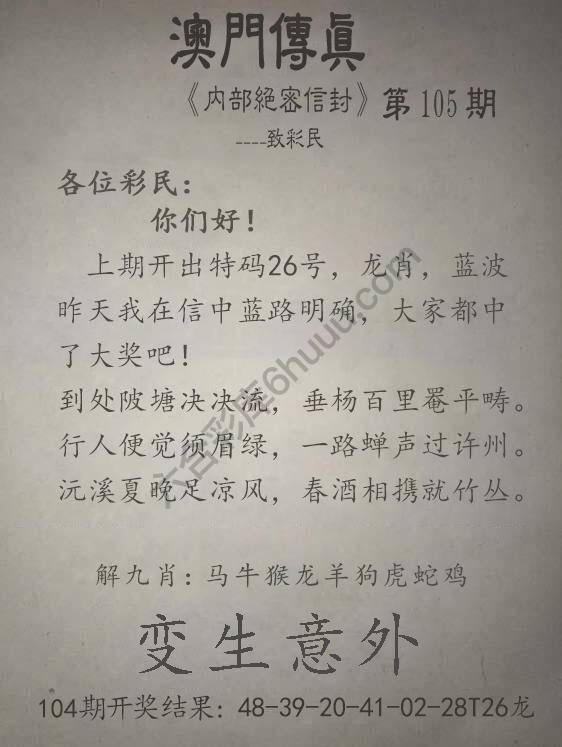 澳門傳眞
《内部絕密信封》第105期
----致彩民
各位彩民：
你们好！
上期开出特码26号，龙肖，蓝波
昨天我在信中蓝路明确，大家都中
了大奖吧！
到处陂塘决决流，垂杨百里罨平畴。
行人便觉须眉绿，一路蝉声过许州。
沅溪夏晚足凉风，春酒相携就竹丛。
解九肖：马牛猴龙羊狗虎蛇鸡
变生意外
104期开奖结果：48-39-20-41-02-28T26龙
六合彩库6huuu.com